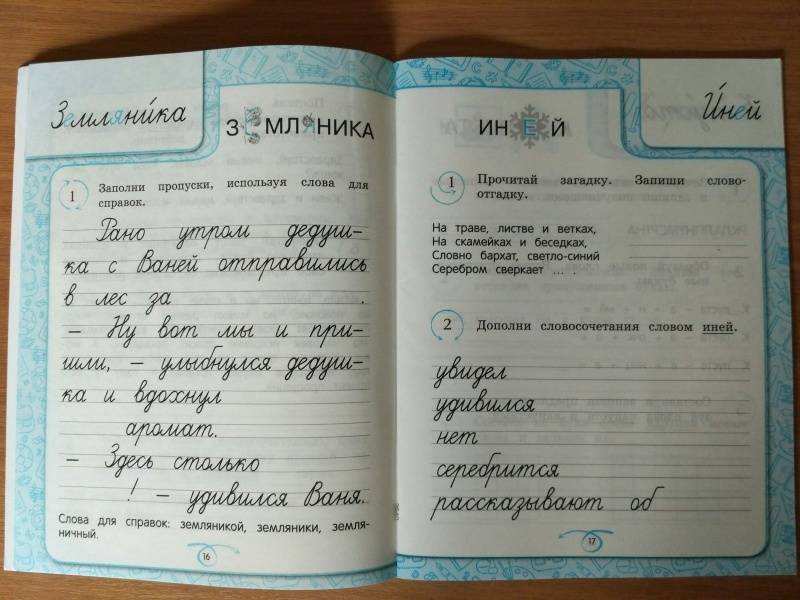 Земляника
ЗЕМЛЯНИКА
1 Заполни пропуски, используя слова для
справок.
Рано утром дедуш-
ка с Ваней отправились
в лес за .
– Ну вот мы и при-
шли, – улыбнулся дедуш-
ка и вдохнул
аромат.
– Здесь столько
! – удивился Ваня.
Слова для справок: земляникой, земляники, земля-
ничный.
16
Иней
ИНЕЙ
1 Прочитай загадку. Запиши слово-
отгадку.
На траве, листве и ветках,
На скамейках и беседках,
Словно бархат, светло-синий
Серебром сверкает ... .
2 Дополни словосочетания словом иней.
увидел
удивился
нет
серебрится
рассказывают об
17